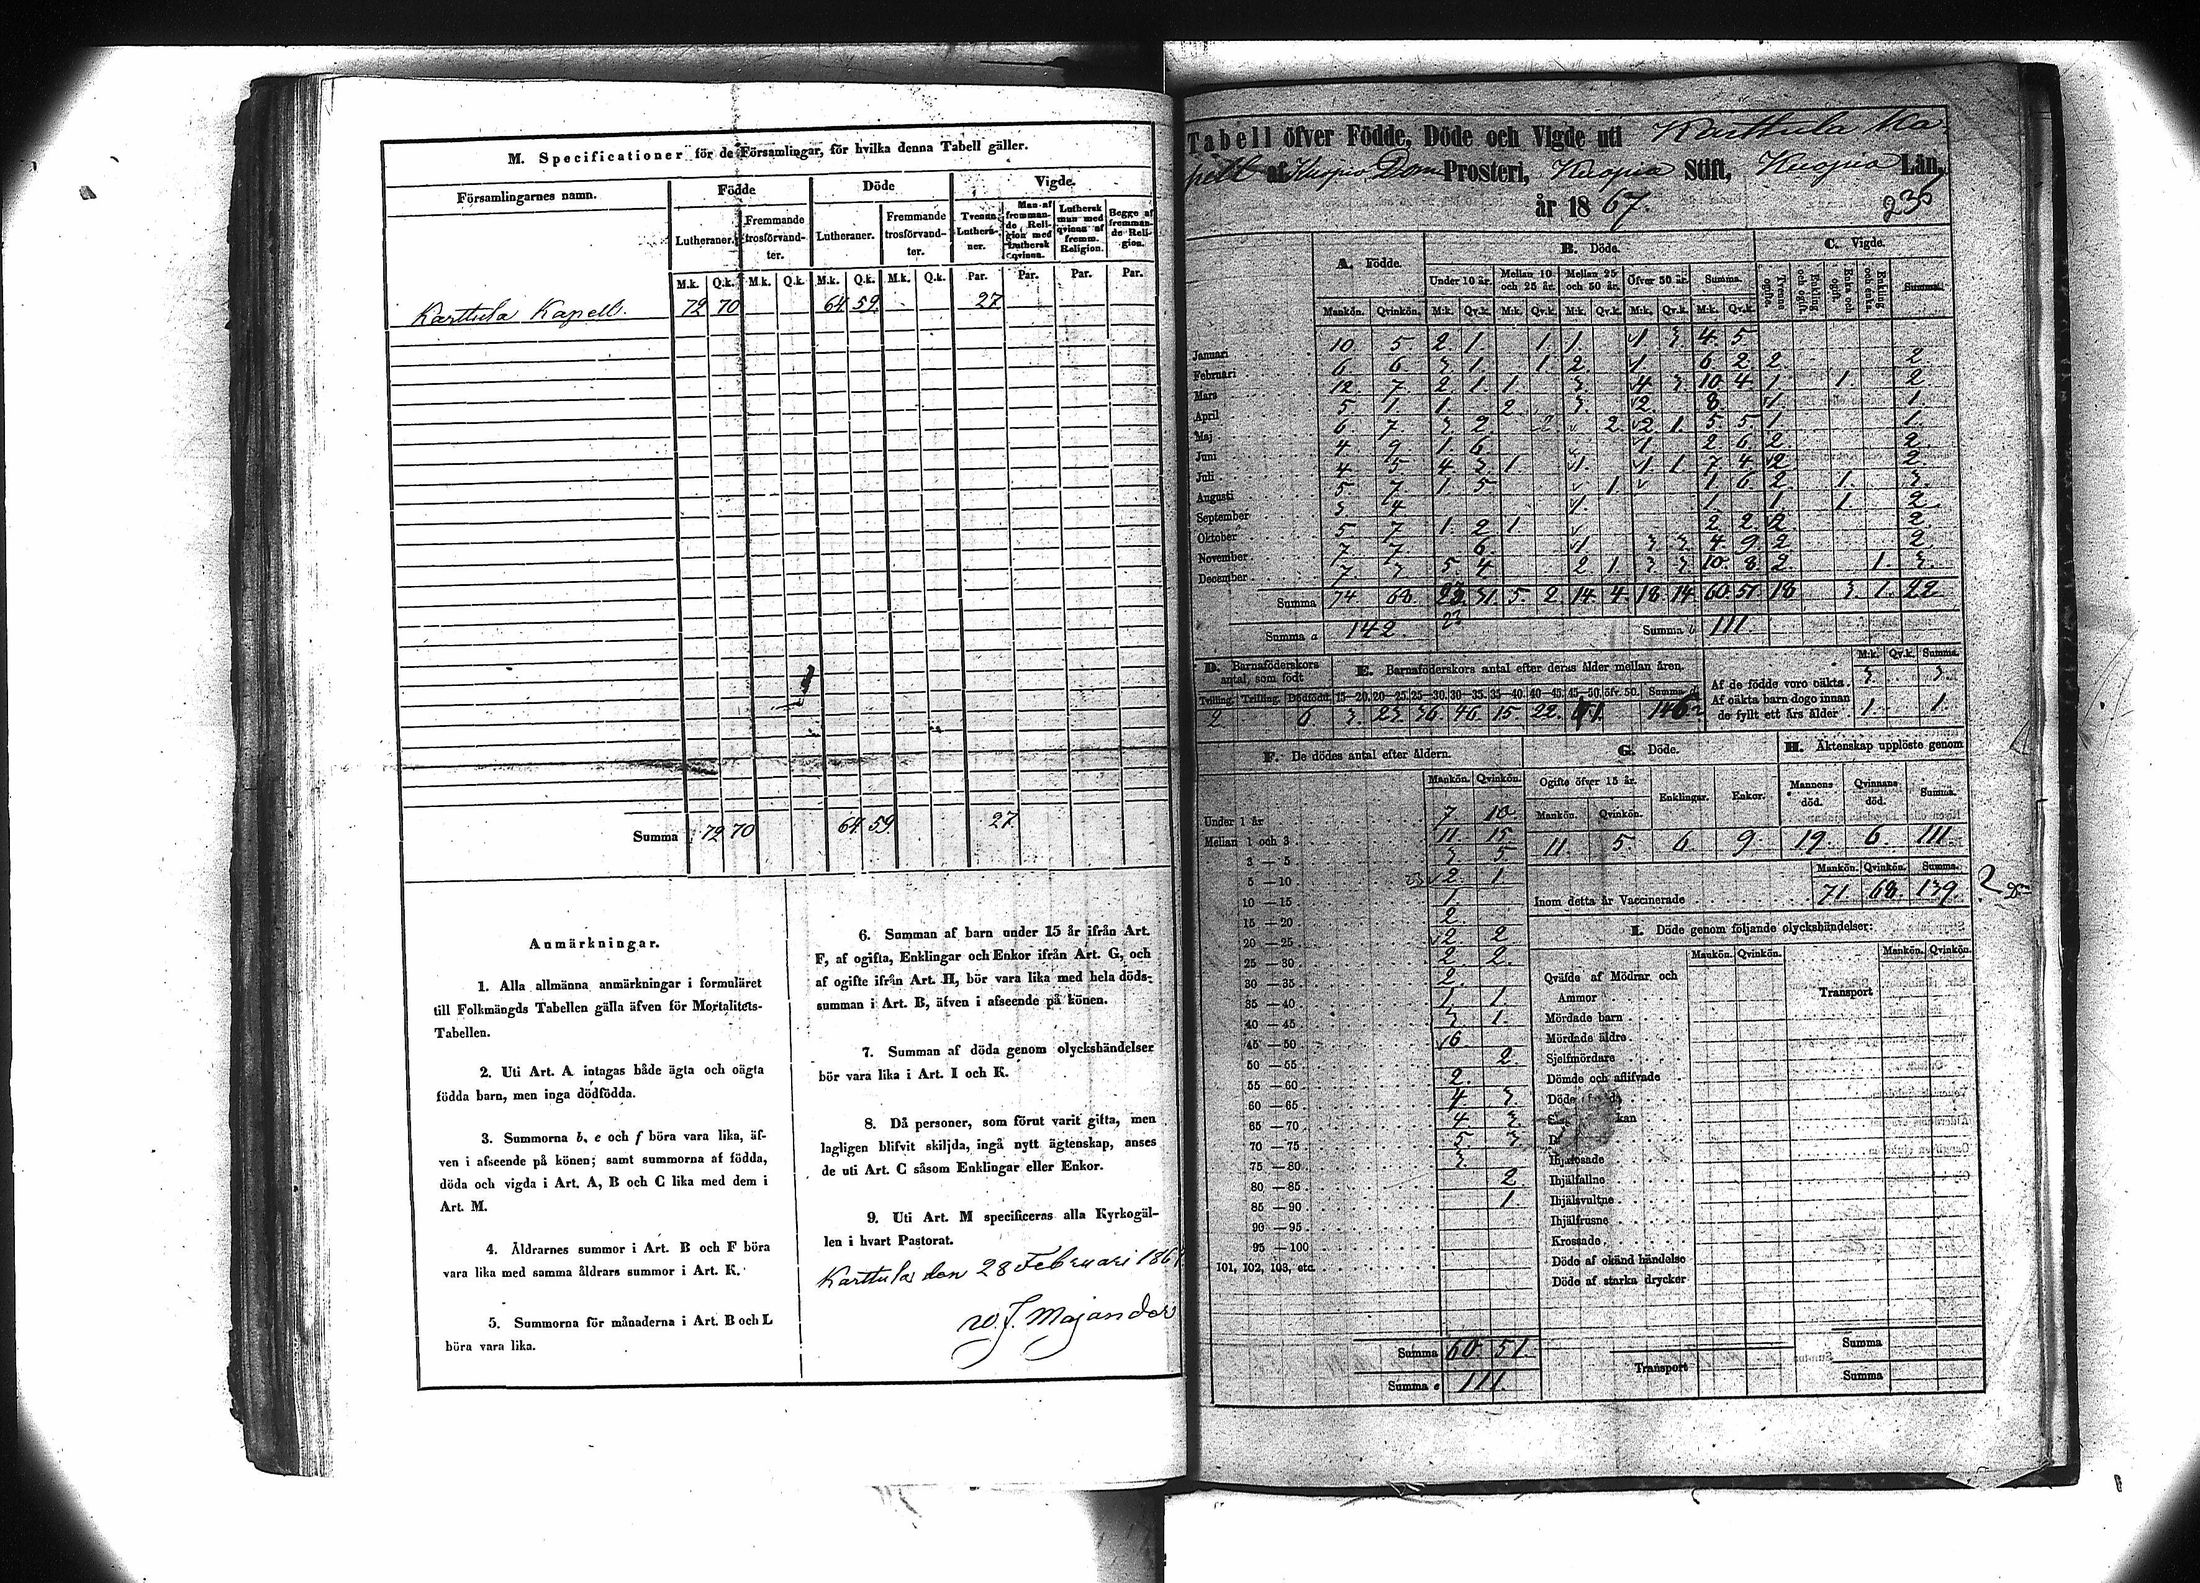 M. Specificationer för de Församlingar, för hvilka denna Tabell gäller.
Församlingarnes namn. Födde Döde Vigde.
Lutheraner. Fremmande trosförvandter. Lutheraner. Fremmande trosförvandter. Tvenne Lutheraner. Man af fremmande Religion med Luthersk qvinna. Luthersk man med qvinna af fremm. Religion. Begge af fremmande Religion.
M.k. Q.k. M.k. Q.k. M.k. Q.k. M.k. Q.k. Par. Par. Par. Par.
Karttula Kapell. 72 70 64 59 27
Summa 72 70 64 59 27
Anmärkningar.
1. Alla allmänna anmärkningar i formuläret
till Folkmängds Tabellen gälla äfven för Mortalitets-
Tabellen.
2. Uti Art. A intagas både ägta och oägta
födda barn, men inga dödfödda.
3. Summorna b, e och f böra vara lika, äf-
ven i afseende på könen; samt summorna af födda,
döda och vigda i Art. A, B och C lika med dem i
Art. M.
4. Åldrarnes summor i Art. B och F böra
vara lika med samma åldrars summor i Art. K.
5. Summorna för månaderna i Art. B och L
böra vara lika.
6. Summan af barn under 15 år ifrån Art.
F, af ogifta, Enklingar och Enkor ifrån Art. G, och
af ogifte ifrån Art. H, bör vara lika med hela döds-
summan i Art. B, äfven i afseende på könen.
7. Summan af döda genom olyckshändelser
bör vara lika i Art. I och K.
8. Då personer, som förut varit gifta, men
lagligen blifvit skiljda, ingå nytt ägtenskap, anses
de uti Art. C såsom Enklingar eller Enkor.
9. Uti Art. M specificeras alla Kyrkogäl-
len i hvart Pastorat.
Karttula den 28 Februari
Majander
Tabell öfver Födde, Döde och Vigde uti Karttula Ka-
pell af Kuopio Dom Prosteri, Kuopio Stift, Kuopio Län,
år 1867. 23
A. Födde. B. Döde. C. Vigde.
Under 10 år. Mellan 10 och 25 år. Mellan 25 och 50 år. Öfver 50 år. Summa. Tvenne ogifte. Enkling och ogift. Enka och ogift. Enkling och enka. Summa.
Mankön. Qvinkön. M:k. Qv.k. M:k. Qv.k. M:k. Qv.k. M:k. Qv.k. M:k. Qv.k.
Januari 10 5 2 1 1 1 1 3 4 5
Februari 6 6 3 1 1 2 1 6 2 2 2
Mars 12 7 2 1 1 3 4 3 10 4 1 1 2
April 5 1 1 2 3 2 8 1 1
Maj 6 7 3 2 2 2 1 5 5 1 1
Juni 4 9 1 6 1 2 6 2 2
Juli 4 5 4 3 1 1 1 1 7 4 2 2
Augusti 5 7 1 5 1 1 6 2 1 3
September 3 4 1 1 1 1 2
Oktober 5 7 1 2 1 2 2 2 2
November 7 7 6 1 3 3 4 9 2 2
December 7 3 5 4 2 1 3 3 10 8 2 1 3
Summa 74 68 23 31 5 2 14 4 18 14 60 51 18 3 1 22
23
Summa a 142 Summa b 111
D. Barnaföderskors antal, som födt E. Barnaföderskors antal efter deras ålder mellan åren.
M:k. Qv.k. Summa.
Tvilling. Trilling. Dödfödt. 15—20. 20—25. 25—30. 30—35. 35—40. 40—45. 45—50. öfv. 50. Summa
2 6 3 23 36 46 15 22 1 146
Af de födde voro oäkta. 3 3
Af oäkta barn dogo innan
de fyllt ett års ålder 1 1
F. De dödes antal efter åldern. G. Döde. H. Äktenskap upplöste genom
Mankön. Qvinkön. Ogifte öfver 15 år. Enklingar. Enkor. Mannens död. Qvinnans död. Summa.
Mankön. Qvinkön.
11 5 6 9 19 6 111
Mankön. Qvinkön. Summa.
Inom detta år Vaccinerade 71 68 139
Under 1 år 7 10
Mellan 1 och 3 11 15
3 — 5 3 5
5 — 10 2 1
10 — 15 1
15 — 20 2
20 — 25 2 2
25 — 30 2 2
30 — 35 2
35 — 40 1 1
40 — 45 3 1
45 — 50 6
50 — 55 2
55 — 60 2
60 — 65 4 3
65 — 70 4 3
70 — 75 5 3
75 — 80 3
80 — 85 2
85 — 90 1
90 — 95
95 — 100
101, 102, 103, etc.
Summa 60 51
Summa e 111
I. Döde genom följande olyckshändelser:
Mankön. Qvinkön. Mankön. Qvinkön.
Qväfde af Mödrar och
Ammor Transport
Mördade barn
Mördade äldre
Sjelfmördare
Dömde och aflifvade
Döde
Ihjälfallne
Ihjälsvultne
Ihjälfrusne
Krossade
Döde af okänd händelse
Döde af starka drycker
Summa
Transport
Summa